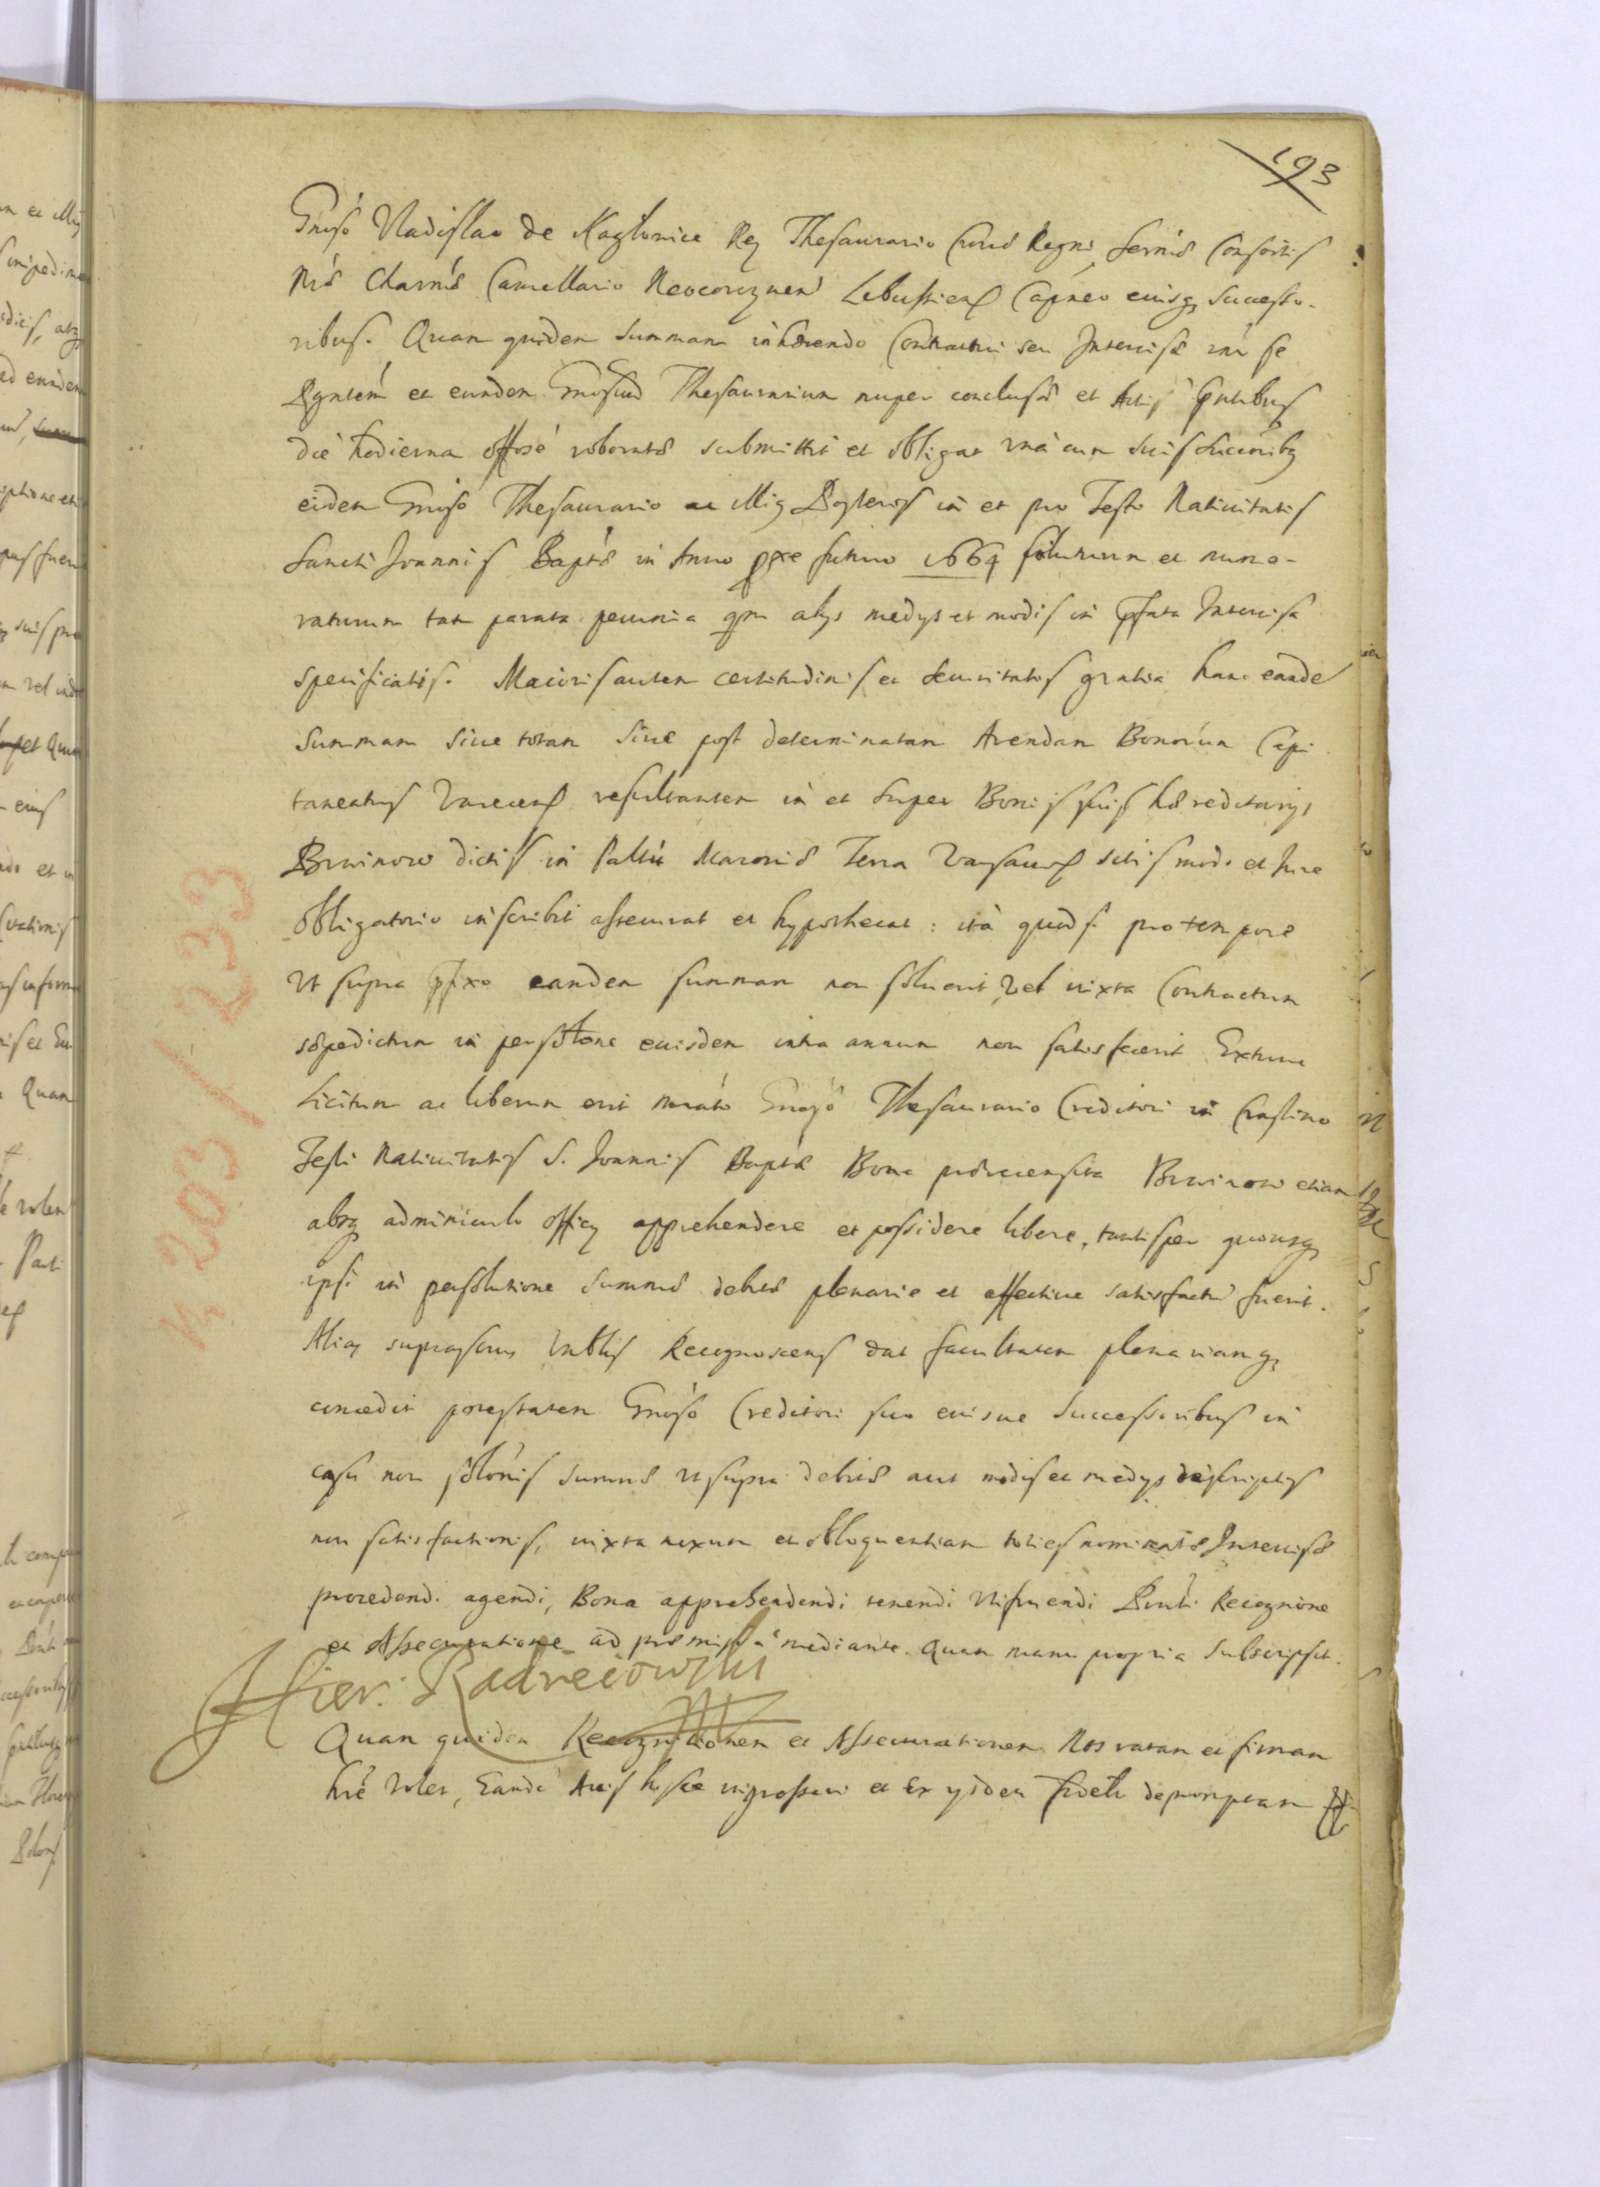 193
Gnoso Vladislao de Nagłowice Rey Thesaurario Curiæ Regni, Sernæ Consortis
Nræ Charmæ Cancellario Neocorczynen Lebussien Capneo eiusq Successo-
ribus. Quam quidem summam inhærendo Contractui seu Intercisæ intr se
et eundem Gnosum Thesaurarium nuper conclusæ et Actis pntibus
die hodierna offose roboratæ submittit et obligat una cum suis succribq
eidem Gnoso Thesaurario ac illiq in et pro Festo Nativitatis
Sancti Joannis Baptæ in Anno pxe futuro 1664 soluturum et nume-
raturum tam parata pecunia qm alys medys et modis in pfata Intercisa
specificatis. Maioris autem certitudinis et securitatis gratia hanc eande
Summam siue totam siue post determinatam Arendam Bonorum Capi
taneatus resultantem in et super Bonis suis hæreditarijs
Brwinow dictis in Pallu Mazoviæ Terra Varsauien sitis modo et Jure
obligatorio inscribit assecurat et hypothecat : ita quod si pro tempore
vt supra pfixo eandem summam non soluerit, vel iuxta Contractum
sæpedictum in persolone euisdem intra annum non satisfecerit Extunc
Licitum ac liberum erit norato Gnoso Thesaurario Creditori in Crastino
Festi Nativitatis S. Joannis Baptæ Bona Brwinow etiam
absq adminiculo officy apprehendere et possidere libere, tantisper quousq
ipsi in persolutione summæ debitæ plenarie et effectiue satisfactu fuerit.
Aliaq suprascrius Recognoscens dat facultatem plenariamq
concedit potestatem Gnoso Creditori suo eiusue Successoribus in
casu non solonis summæ vt supra debitæ aut modis et medys descriptis
non satisfactionis, iuxta nexum et obloquentiam toties nominatæ Intercisæ
procedendi agendi, Bona apprehendendi tenendi vtifruendi Pnti Recognone
et Assecuratione ad præmissa mediante. Quam manu propria subscripsit.
Hier: Radzieiowski
Quam quidem Recognitionem et Assecurationem Nos ratam et firmam
hre volen, Eande Actis hisce ingrossari et Ex ysdem fideli depromptam
N 203/233